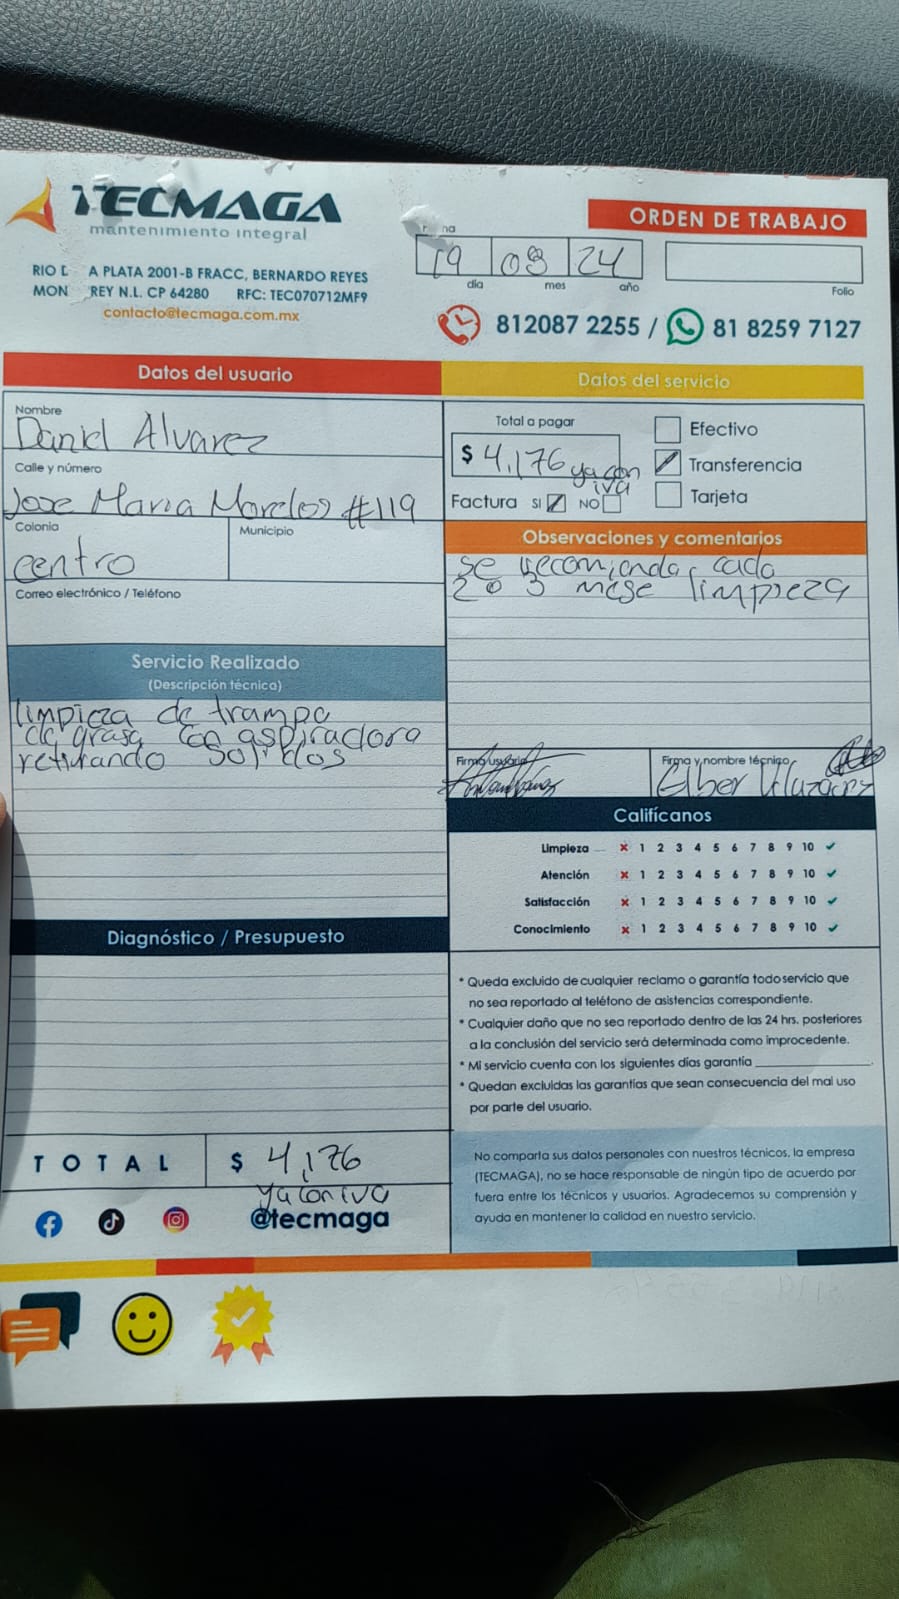 TECMAGA
mantenimiento integral
RIO D A PLATA 2001-B FRACC, BERNARDO REYES
MON REY N.L. CP 64280 RFC: TEC070712MF9
contacto@tecmaga.com.mx
ORDEN DE TRABAJO
19 09 24
día mes año
Folio
812087 2255 / 81 8259 7127
Datos del usuario
Nombre
Daniel Alvarez
Calle y número
Jose Maria Morelos #119
Colonia
centro
Municipio
Correo electrónico / Teléfono
Servicio Realizado
(Descripción técnica)
limpieza de trampa
de grasa con aspiradora
retirando solidos
Diagnóstico / Presupuesto
TOTAL $ 4,176
ya con iva
@tecmaga
Datos del servicio
Total a pagar
$ 4,176 ya con
iva
Efectivo
Transferencia
Tarjeta
Factura SI NO
Observaciones y comentarios
se recomienda cada
2 o 3 mese limpieza
Firma usuario
Firma y nombre técnico
Elber
Califícanos
Limpieza 1 2 3 4 5 6 7 8 9 10
Atención 1 2 3 4 5 6 7 8 9 10
Satisfacción 1 2 3 4 5 6 7 8 9 10
Conocimiento 1 2 3 4 5 6 7 8 9 10
* Queda excluido de cualquier reclamo o garantía todo servicio que
no sea reportado al teléfono de asistencias correspondiente.
* Cualquier daño que no sea reportado dentro de las 24 hrs. posteriores
a la conclusión del servicio será determinada como improcedente.
* Mi servicio cuenta con los siguientes días garantía
* Quedan excluidas las garantías que sean consecuencia del mal uso
por parte del usuario.
No comparta sus datos personales con nuestros técnicos, la empresa
(TECMAGA), no se hace responsable de ningún tipo de acuerdo por
fuera entre los técnicos y usuarios. Agradecemos su comprensión y
ayuda en mantener la calidad en nuestro servicio.